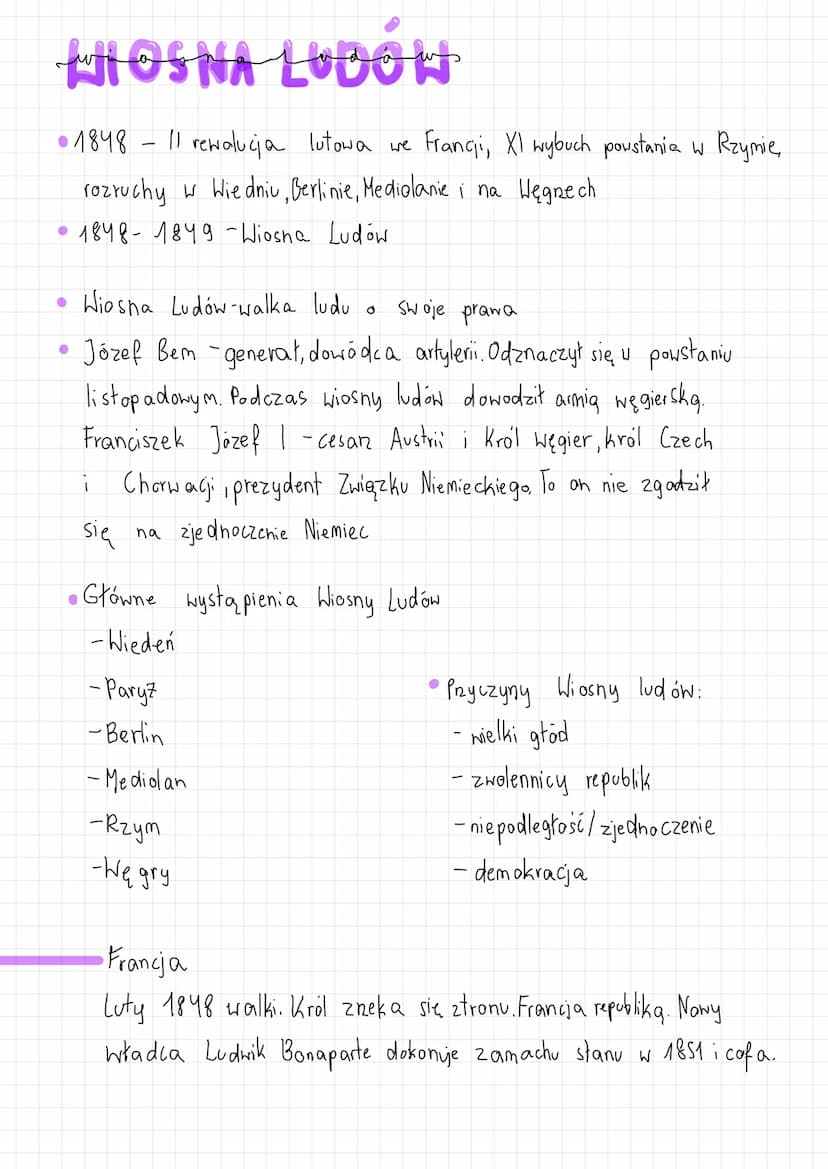 WIOSNA LUDÓW
wiosna ludów
• 1848 – II rewolucja lutowa we Francji, XI wybuch powstania w Rzymie,
rozruchy w Wiedniu, Berlinie, Mediolanie i na Węgrzech
• 1848- 1849 - Wiosna Ludów
• Wiosna Ludów-walka ludu o swoje prawa
• Józef Bem - generał, dowódca artylerii. Odznaczył się w powstaniu
listopadowym. Podczas wiosny ludów dowodził armią węgierską.
Franciszek Józef I - cesarz Austrii i Król Węgier, król Czech
i Chorwacji, prezydent Związku Niemieckiego. To on nie zgodził
się na zjednoczenie Niemiec
• Główne wystąpienia Wiosny Ludów
- Wiedeń
- Paryż
- Berlin
- Mediolan
- Rzym
- Węgry
• Przyczyny Wiosny ludów:
- wielki głód
- zwolennicy republik
- niepodległość/zjednoczenie
- demokracja
Francja
Luty 1848 walki. Król zneka się ztronu. Francja republiką. Nowy
władca Ludwik Bonaparte dokonuje zamachu stanu w 1851 i cofa.